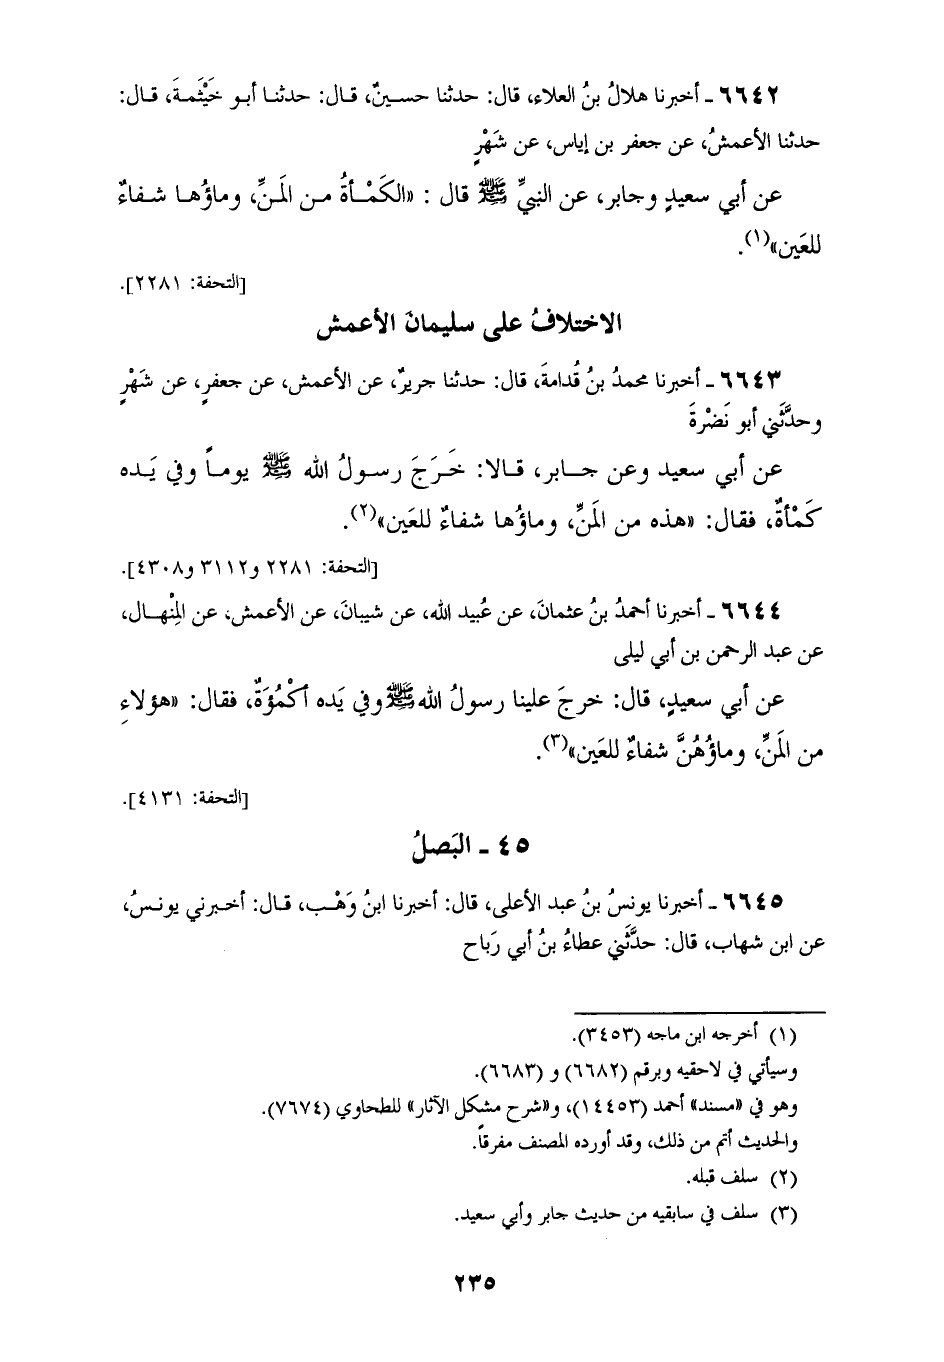 ٦٦٤٢ ـ أخبرنا هلالُ بنُ العلاء، قال: حدثنا حسينٌ، قال: حدثنا أبو خَيْثَمةَ، قال:
حدثنا الأعمشُ، عن جعفر بن إياس، عن شَهْرٍ
عن أبي سعيدٍ وجابر، عن النبيِّ ﷺ قال : «الكَمْأةُ من المَنِّ، وماؤُها شفاءٌ
للعَين»(١).
[التحفة: ٢٢٨١].
الاختلافُ على سليمانَ الأعمش
٦٦٤٣ ـ أخبرنا محمدُ بنُ قُدامةَ، قال: حدثنا جريرٌ، عن الأعمش، عن جعفرٍ، عن شَهْرٍ
وحدَّثَني أبو نَضْرةَ
عن أبي سعيد وعن جابر، قالا: خَرَجَ رسولُ الله ﷺ يوماً وفي يَده
كَمْأةٌ، فقال: «هذه من المَنِّ، وماؤُها شفاءٌ للعَين»(٢).
[التحفة: ٢٢٨١ و٣١١٢ و٤٣٠٨].
٦٦٤٤ ـ أخبرنا أحمدُ بنُ عثمانَ، عن عُبيد الله، عن شيبانَ، عن الأعمش، عن المِنْهال،
عن عبد الرحمن بن أبي ليلى
عن أبي سعيدٍ، قال: خرجَ علينا رسولُ الله ﷺ وفي يَده أكْمُؤَةٌ، فقال: «هؤلاءِ
من المَنِّ، وماؤُهُنَّ شفاءٌ للعَين»(٣).
[التحفة: ٤١٣١].
٤٥ ـ البَصلُ
٦٦٤٥ ـ أخبرنا يونسُ بنُ عبد الأعلى، قال: أخبرنا ابنُ وَهْب، قال: أخبرني يونسُ،
عن ابن شهاب، قال: حدَّثَني عطاءُ بنُ أبي رَباح
(١) أخرجه ابن ماجه (٣٤٥٣).
وسيأتي في لاحقيه وبرقم (٦٦٨٢) و (٦٦٨٣).
وهو في «مسند» أحمد (١٤٤٥٣)، و«شرح مشكل الآثار» للطحاوي (٧٦٧٤).
والحديث أتم من ذلك، وقد أورده المصنف مفرقاً.
(٢) سلف قبله.
(٣) سلف في سابقيه من حديث جابر وأبي سعيد.
٢٣٥